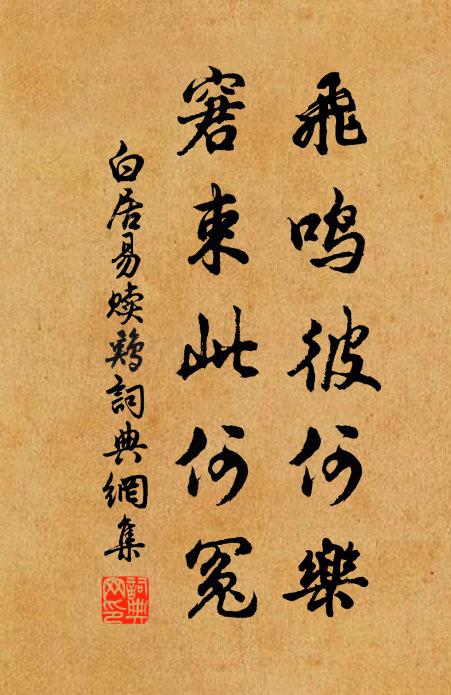 飛鳴彼何樂
窘束此何冤
白居易赎鷄詞典網集
詞典網印